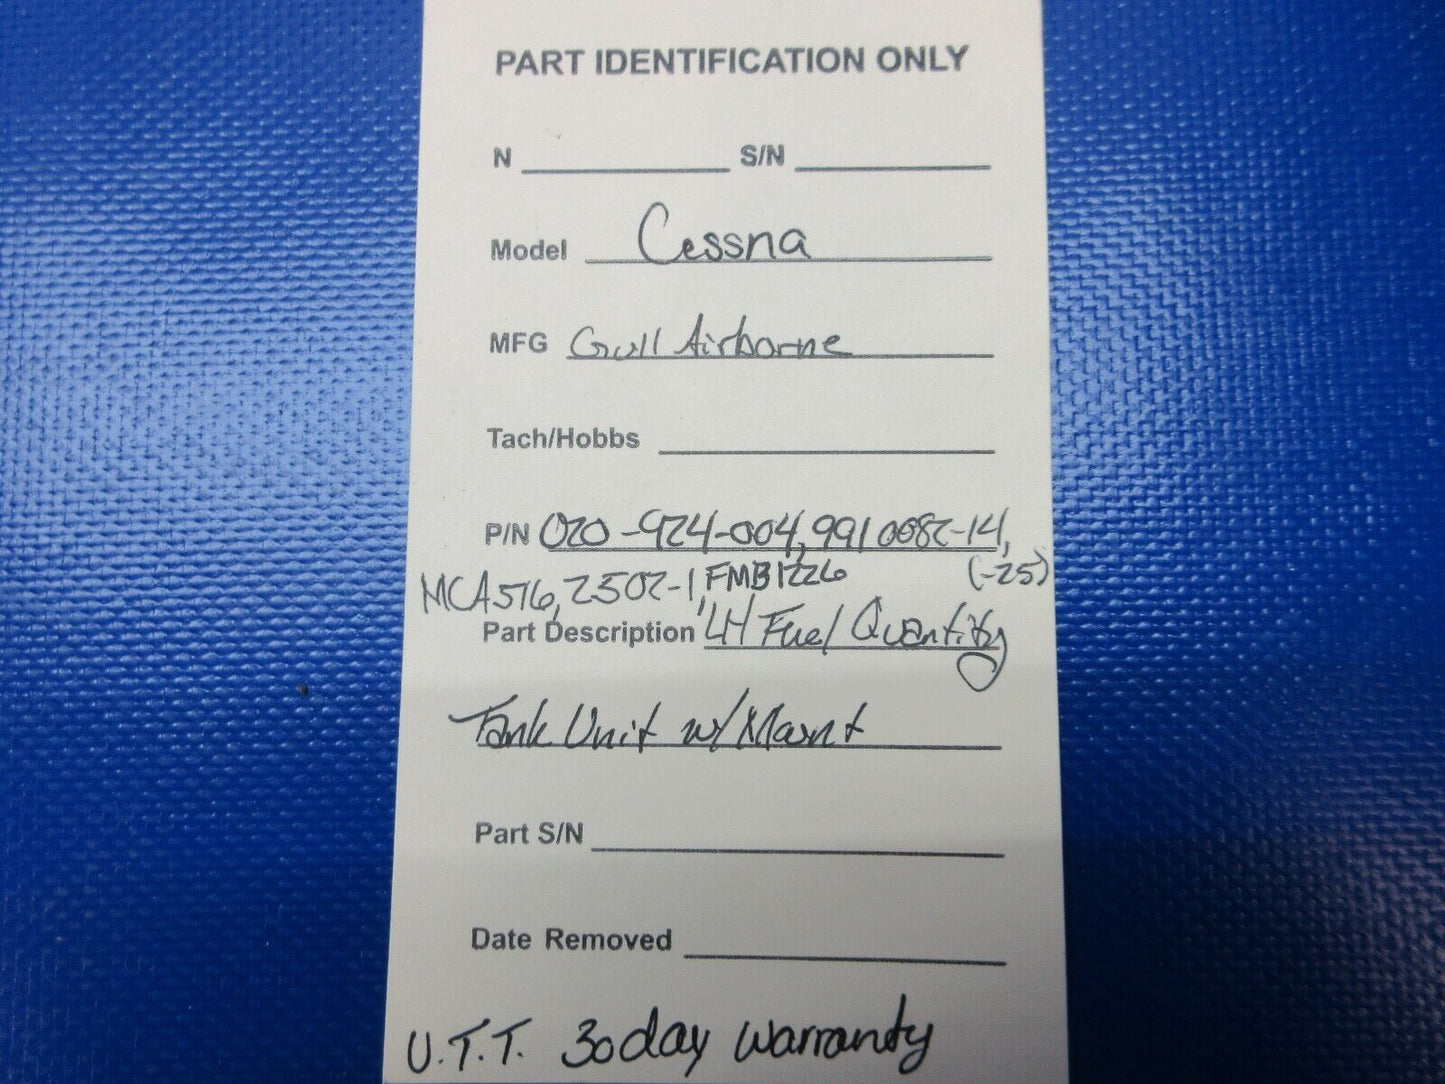 PART IDENTIFICATION ONLY
N S/N
Model Cessna
MFG Gull Airborne
Tach/Hobbs
P/N 020-924-004, 9910082-14,
MCA516, 2502-1, FMB1226 (-25)
Part Description LH Fuel Quantity
Tank Unit w/ Mount
Part S/N
Date Removed
U.T.T. 30 day warranty